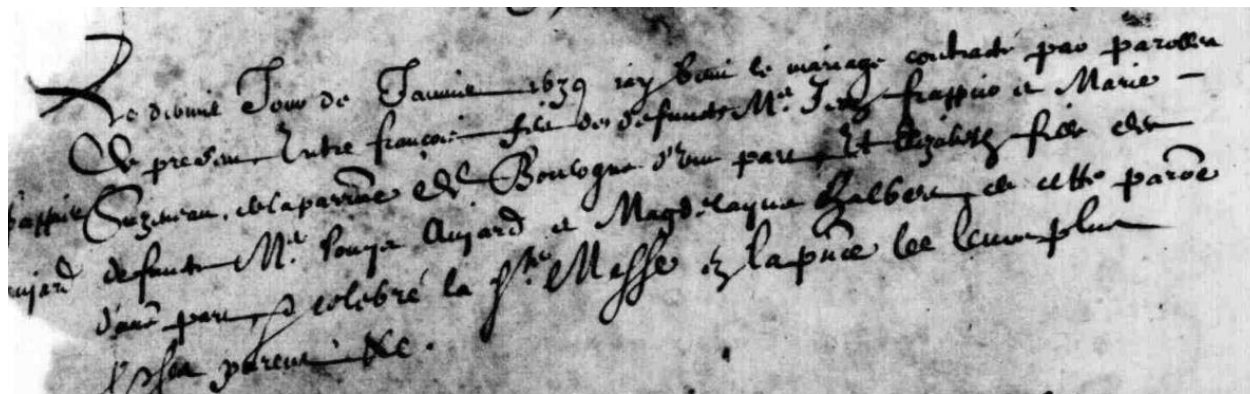 Le dixme Jour de Janvier 1639 j'ay beni le mariage contracté par parolles
de present Entre françois filz des defunts Mre Jean frappier et Marie
Suzeneau, de la parroisse de Boulogne d'une part Et Elizabeth fille des
defunts Mre Louys Aujard et Magdelayne de cette paroe
d'autre part, et celebré la Ste Messe en la pnce de leurs plus
pches parens &c.